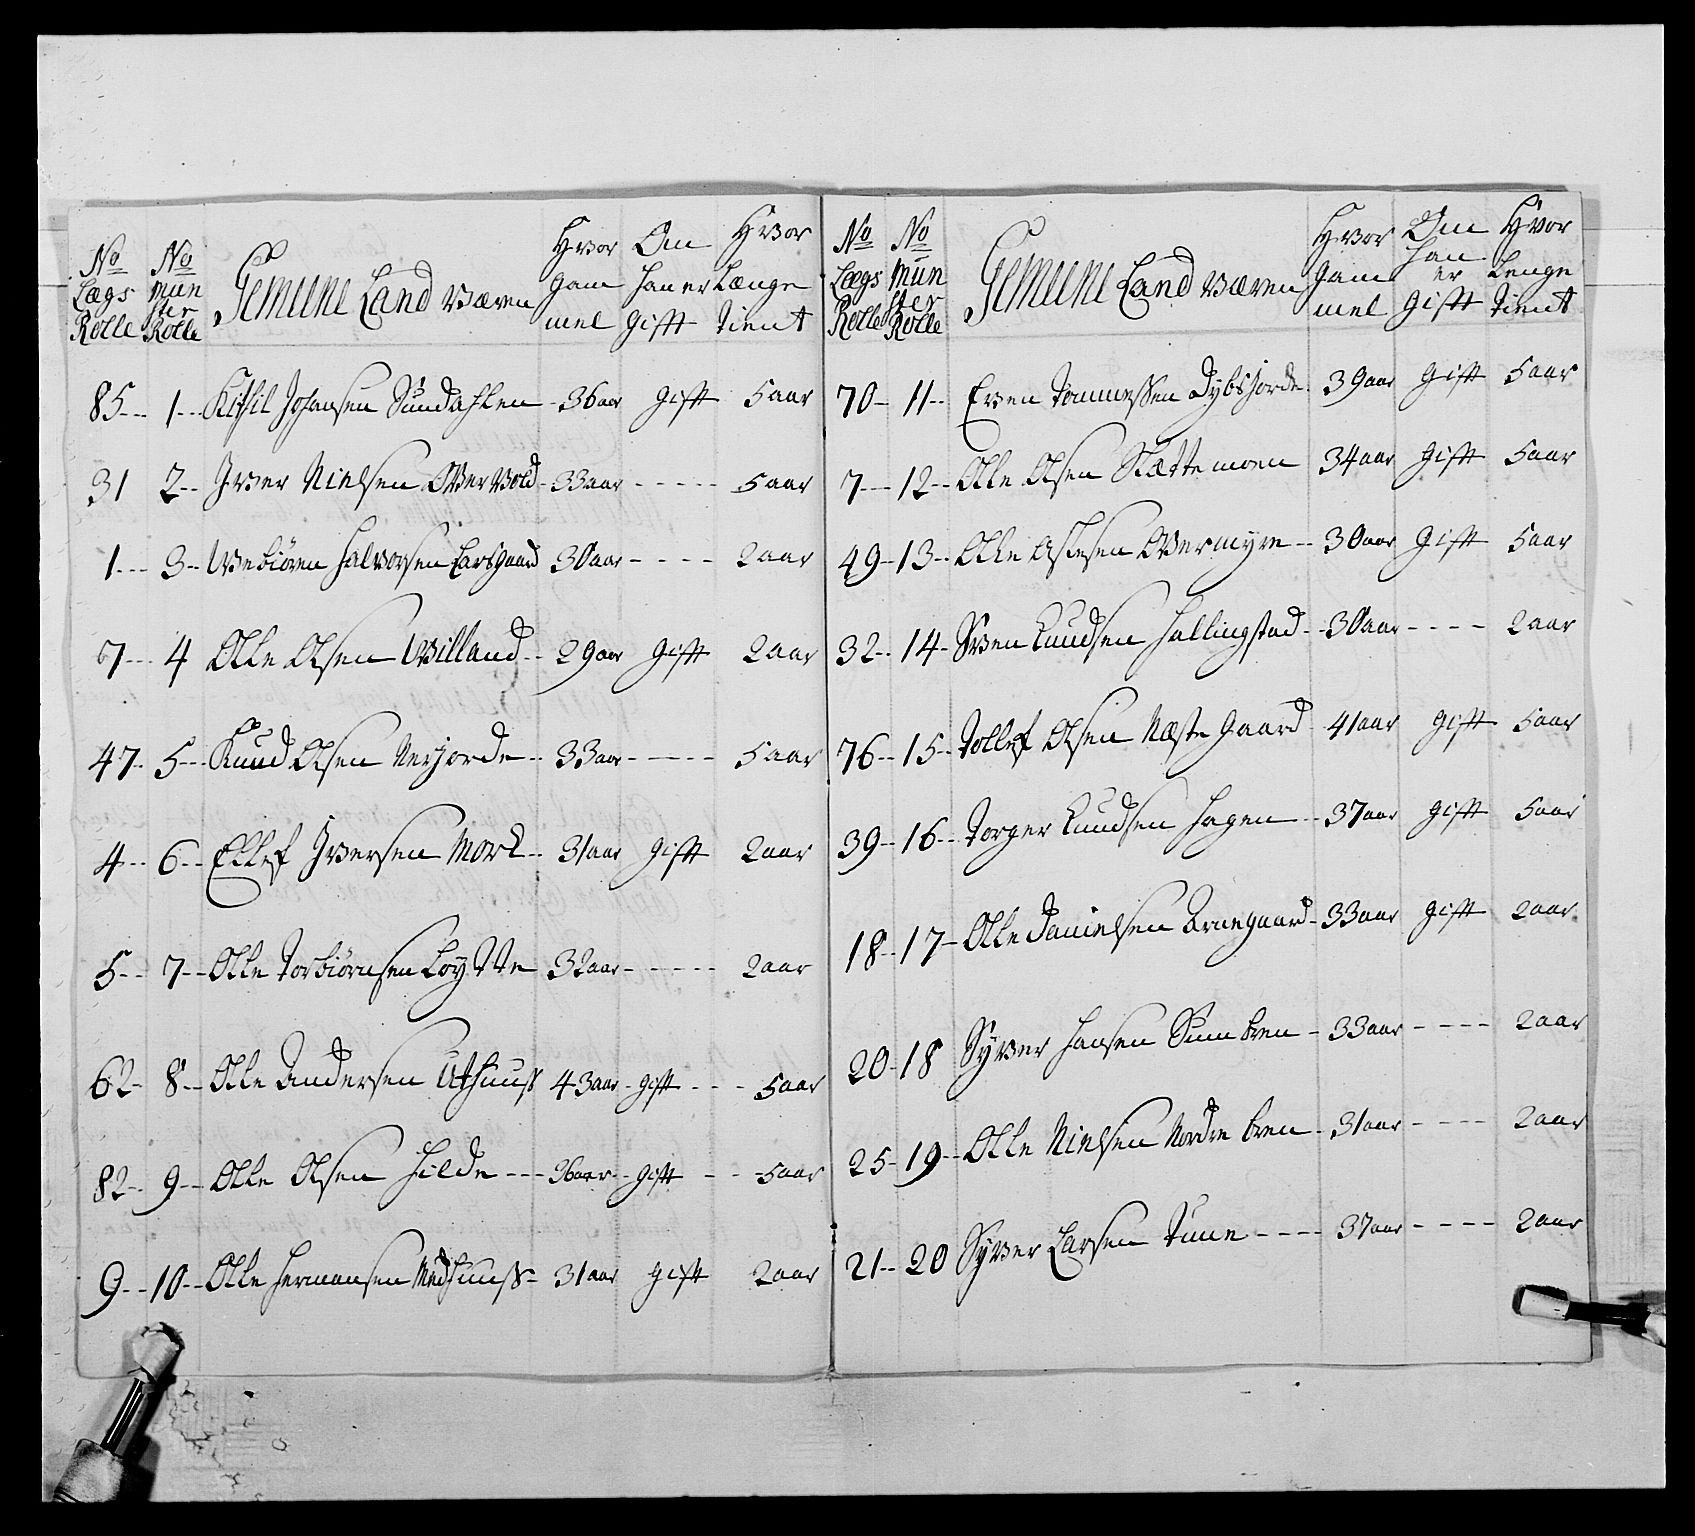 No Lægs Rolle | No Mun ster Rolle | Gemeene Land Væren | Hvor gam mel | Om han er gift | Hvor Længe tient
85 -- 1 -- Kittil Johansen Sundahlen - 36 aar gift 5 aar
31 2 -- Iver Nielsen Øvervold - 33 aar ----- 5 aar
1 --- 3 -- Vebiøren Halvorsen Larsgaard 30 aar ---- 2 aar
7 --- 4 Olle Olsen Villand -- 29 aar gift 2 aar
47 - 5 -- Knud Olsen Nerjorde -- 33 aar ----- 5 aar
4 -- 6 -- Ellef Iversen Mork -- 31 aar gift 2 aar
5 -- 7 -- Olle Torbiørnsen Løytte 32 aar ----- 2 aar
62 - 8 -- Olle Andersen Uthuuss 43 aar - gift --- 5 aar
82 -- 9 -- Olle Olsen Hilde --- 36 aar -- gift -- 5 aar
9 -- 10 -- Olle Hermansen Medhuuss - 31 aar gift 2 aar
No Lægs Rolle | No Mun ster Rolle | Gemeene Land Væren | Hvor gam mel | Om han er gift | Hvor Lenge tient
70 - 11 -- Even Tommessen Dybsjorde 39 aar gift 5 aar
7 --- 12 -- Olle Olsen Slættemoen 34 aar gift 5 aar
49 -- 13 -- Olle Aslesen Øvermyre -- 30 aar gift 5 aar
32 -- 14 - Sven Knudsen Hallingstad -- 30 aar ---- 2 aar
76 -- 15 -- Tollef Olsen Næstegaard 41 aar gift 5 aar
39 -- 16 -- Torger Knudsen Hagen -- 37 aar gift 5 aar
18 -- 17 - Olle Danielsen Bruegaard - 33 aar gift 2 aar
20 - 18 Syver Hansen Sunbren - 33 aar ---- 2 aar
25 - 19 -- Olle Nielsen Nordre bren - 31 aar ---- 2 aar
21 -- 20 Syver Larsen Tune ---- 37 aar ---- 2 aar